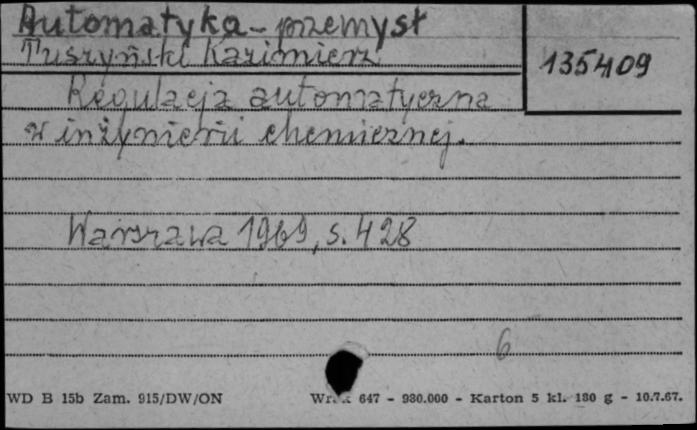 Automatyka - przemysł
Tuszyński Kazimierz
135409
Regulacja automatyczna
w inżynierii chemicznej.
Warszawa 1969, s. 428
6
WD B 15b Zam. 915/DW/ON 647 - 980.000 - Karton 5 kl. 180 g - 10.7.67.